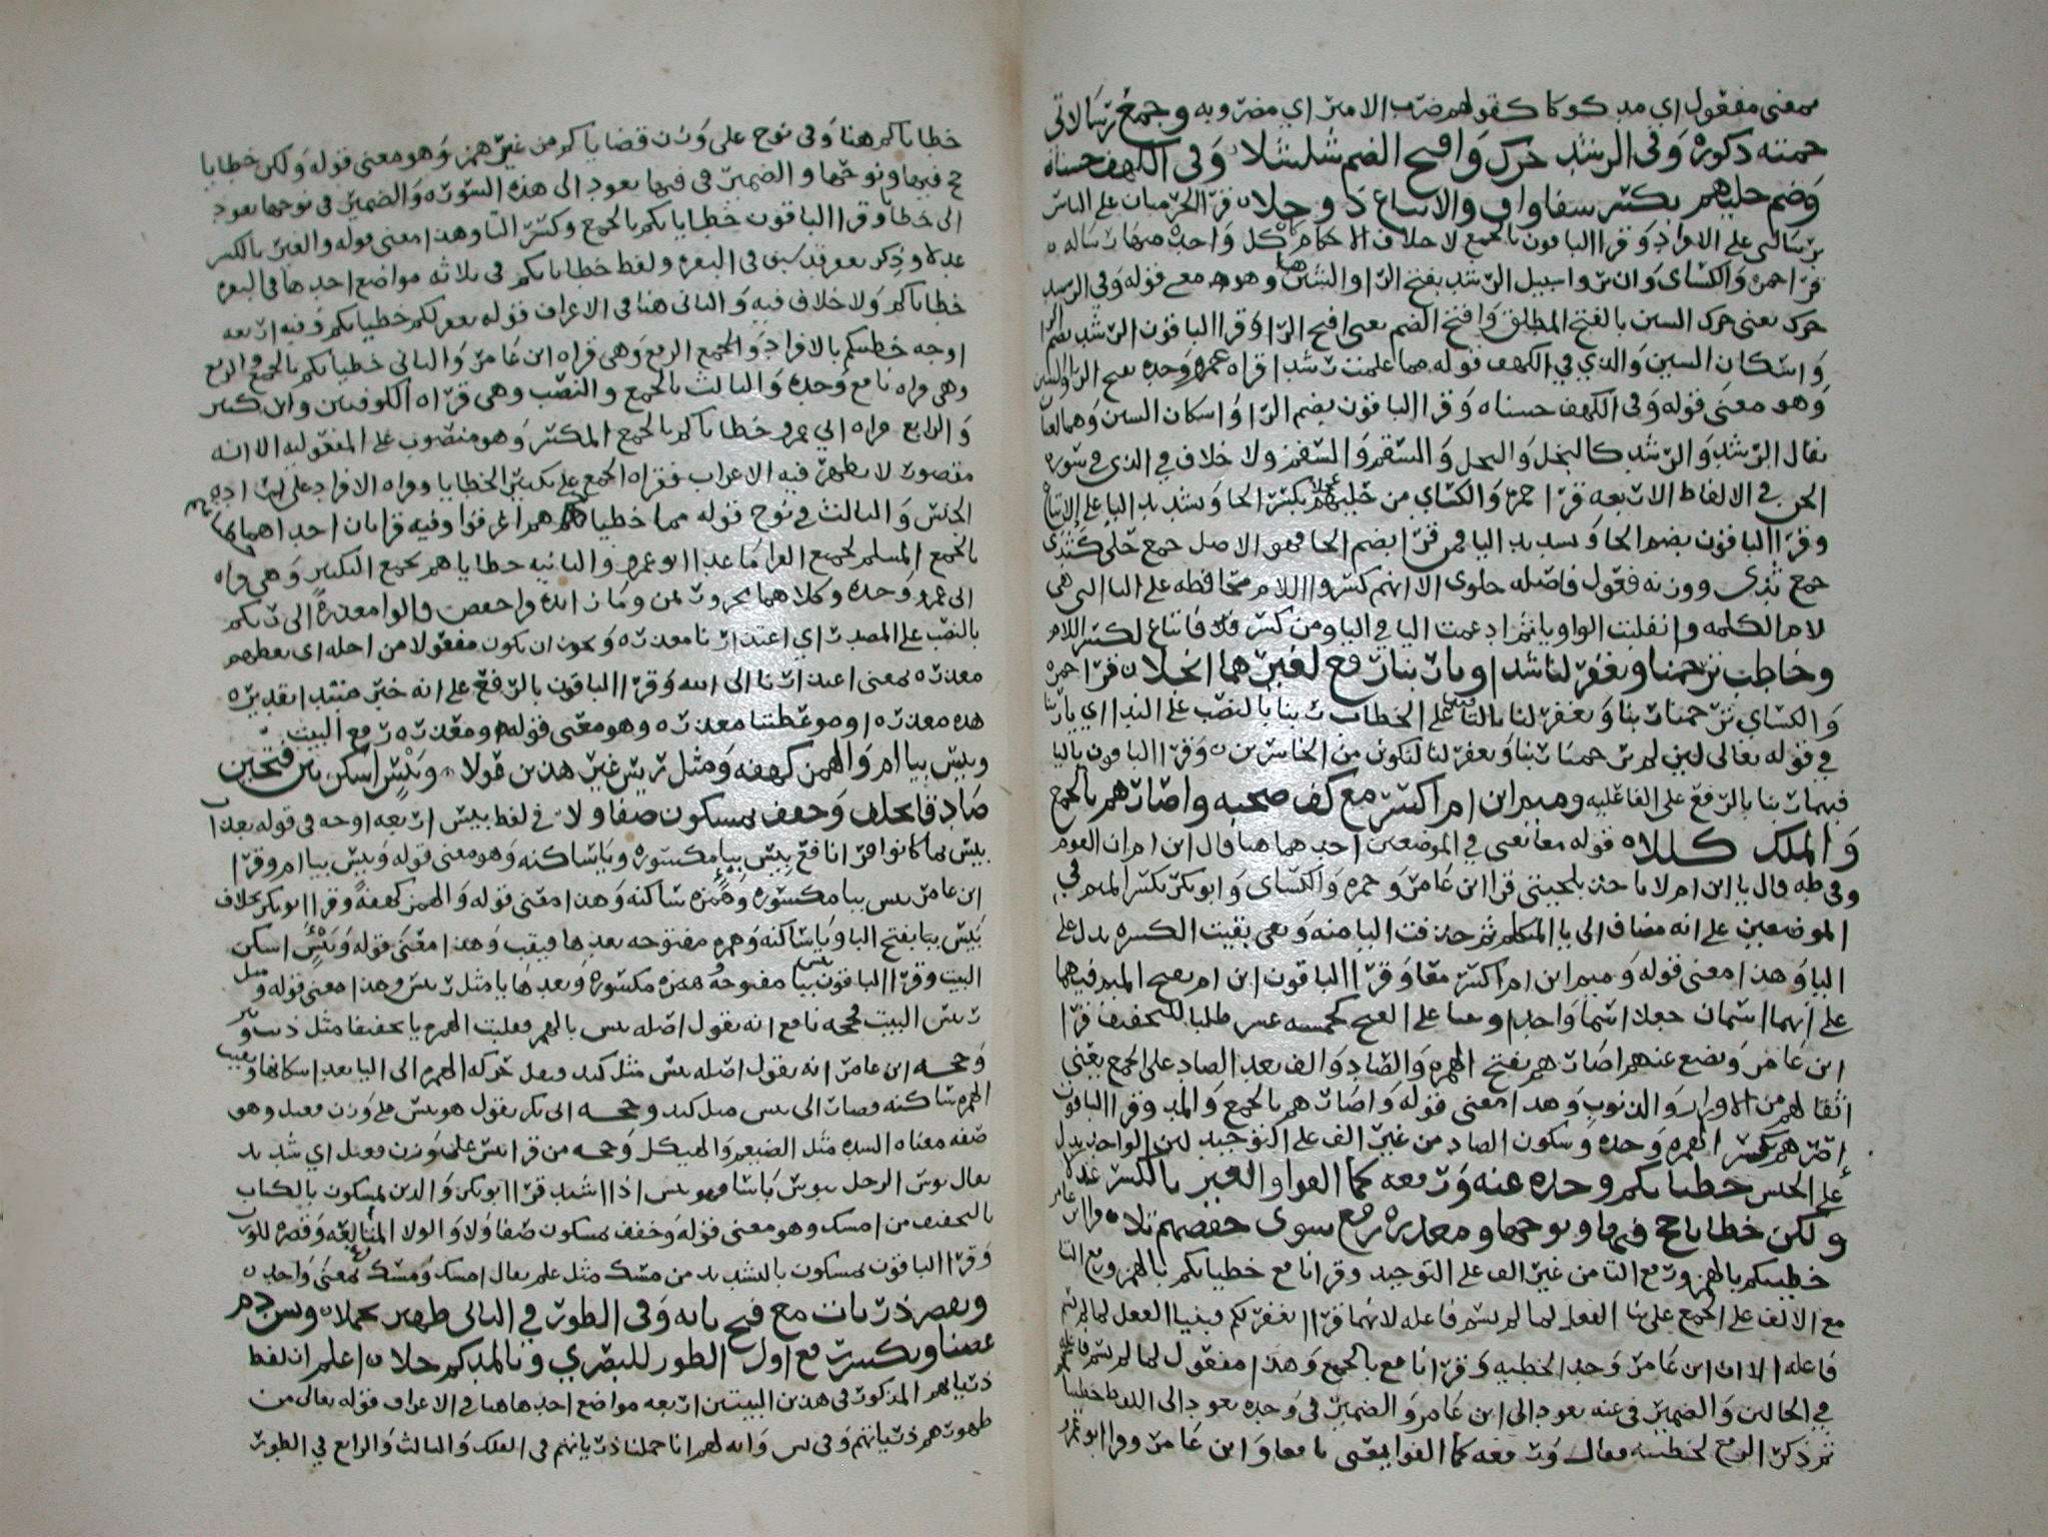 بمعنى مفعول اي مدكوكا كقولهم ضرب الامير اي مضروبه وجمع رسالاتي
حمته ذكوره وفي الرشد حرك وافتح الضم شلشلا وفي الكهف حسناه
وضم حليهم بكسر شفا واف والاتباع ذو حلا قرا الحرميان على الناس
برسالتي على الافراد وقرا الباقون بالجمع لا خلاف كل واحد منهما رساله
قرا حمزه والكساي وان يروا سبيل الرشد بفتح الرا والشين وهو معنى قوله وفي الرشد
حرك يعني حرك السين بالفتح المطلق وافتح الضم يعني افتح الرا وقرا الباقون الرشد بضم الرا
واسكان السين والذي في الكهف قوله مما علمت رشدا قراه عمرو وحده بفتح الرا والشين
وهو معنى قوله وفي الكهف حسناه وقرا الباقون بضم الرا واسكان السين وهما لغتان
يقال الرشد والرشد كالبخل والبخل والسقم والسقم ولا خلاف في الذي في سوره
الجن في الالفاظ الاربعه قرا حمزه والكساي من حليهم عجلا بكسر الحا وتشديد اليا على الاتباع
وقرا الباقون بضم الحا وتشديد اليا فمن قرا بضم الحا فهو الاصل جمع حلي كثدي
جمع ثدي ووزنه فعول فاصله حلوي الا انهم كسروا اللام محافظه على اليا التي هي
لام الكلمه وانقلبت الواو يا ثم ادغمت اليا في اليا ومن كسر فاتباع لكسر اللام
وخاطب ترحمنا وتغفر لنا شذا وبا ربنا رفع لغيرهما انجلا قرا حمزه
والكساي ترحمنا ربنا وتغفر لنا بالتا فيهما على الخطاب ربنا بالنصب على الندا اي يا ربنا
في قوله تعالى لين لم ترحمنا ربنا وتغفر لنا لنكونن من الخاسرين وقرا الباقون باليا
فيهما ربنا بالرفع على الفاعليه وميم ابن ام اكسر معا كفو صحبه واصارهم بالجمع
والمد كللا قوله معا يعني في الموضعين احدهما هنا قال ابن ام ان القوم
وفي طه قال يا ابن ام لا تاخذ بلحيتي قرا ابن عامر وحمزه والكساي وابو بكر بكسر الميم في
الموضعين على انه مضاف الى يا المتكلم ثم حذفت اليا منه وبقي بقيت الكسره تدل على
اليا وهذا معنى قوله وميم ابن ام اكسر معا وقرا الباقون ابن ام بفتح الميم فيهما
على انهما اسمان جعلا اسما واحدا وبنيا على الفتح كخمسه عشر طلبا للتخفيف قرا
ابن عامر ويضع عنهم اصارهم بفتح الهمزه والصاد والف بعد الصاد على الجمع يعني
اثقالهم من الاوزار والذنوب وهذا معنى قوله واصارهم بالجمع والمد وقرا الباقون
اصرهم بكسر الهمزه وحده وسكون الصاد من غير الف على التوحيد لان الواحد يدل
على الجنس خطياتكم وحده عنه ورفعه كما الفوا والغير بالكسر عدلا
ولكن خطايا حج فيها ونوحها ومعذره رفع سوى حفصهم تلا قرا ابن عامر
خطيتكم بالهمز ورفع التا من غير الف على التوحيد وقرا نافع خطياتكم بالهمز ورفع التا
مع الالف على الجمع على بنا الفعل لما لم يسم فاعله لانهما قرا تغفر لكم فبنيا الفعل لما لم يسم
فاعله الا ان ابن عامر وحد الخطيه وقرا نافع بالجمع وهذا مفعول لما لم يسم فاعله
في الحالين والضمير في عنه يعود الى ابن عامر والضمير في وحده يعود الى اللفظ خطيا
ثم ذكر الرفع لخطيته فقال ورفعه كما الفوا يعني نافعا وابن عامر وقرا ابو عمرو
خطاياكم هنا وفي نوح على وزن قضاياكم من غير همز وهو معنى قوله ولكن خطايا
حج فيها ونوحها والضمير في فيها يعود الى هذه السوره والضمير في نوحها يعود
الى خطايا وقرا الباقون خطياتكم بالجمع وكسر التا وهذا معنى قوله والغير بالكسر
عدلا وذكر نغفر قد سبق في البقره ولفظ خطاياكم في ثلاثه مواضع احدها في البقره
خطاياكم ولا خلاف فيه والثاني هنا في الاعراف قوله نغفر لكم خطيياتكم وفيه اربعه
اوجه خطيتكم بالافراد والجمع الرفع وهي قراه ابن عامر والثاني خطياتكم بالجمع والرفع
وهي قراه نافع وحده والثالث بالجمع والنصب وهي قراه الكوفيين وابن كثير
والرابع قراه ابي عمرو خطاياكم بالجمع المكسر وهو منصوب على المفعوليه الا انه
مقصور لا يظهر فيه الاعراب فقراه الجمع على تكسير الخطايا وقراه الافراد على اراده
الجنس والثالث في نوح قوله مما خطيياتهم اغرقوا وفيه قراتان احداهما
بالجمع المسلم لجميع القرا ما عدا ابو عمرو والثانيه خطاياهم بجمع التكسير وهي قراه
ابي عمرو وحده وكلاهما مجرور بمن وما زايده وا حفص قالوا معذرة الى ربكم
بالنصب على المصدر اي اعتذارنا معذره ويجوز ان يكون مفعولا من اجله اي يعظهم
معذره بمعنى اعتذارنا الى الله وقرا الباقون بالرفع على انه خبر مبتدا تقديره
هذه معذره او موعظتنا معذره وهو معنى قوله ومعذره رفع البيت
وبيس بيا ام والهمز كهفه ومثل رييس غير هذين قولا وبيس اسكن بين فتحين
صادقا بخلف وخفف يمسكون صفا ولا في لفظ بيس اربعه اوجه في قوله بعذاب
بيس بما كانوا قرا نافع بيس ببا مكسوره ويا ساكنه وهو معنى قوله وبيس بيا ام وقرا
ابن عامر بيس ببا مكسوره وهمزه ساكنه وهذا معنى قوله والهمز كهفه وقرا ابو بكر بخلاف
بيس ببا بفتح البا ويا ساكنه وهمزه مفتوحه بعدها فيقب وهذا معنى قوله وبيس اسكن
البيت وقرا الباقون بيس ببا مفتوحه وهمزه مكسوره وبعدها يا مثل رييس وهذا معنى قوله ومثل
رييس البيت فحجه نافع انه يقول اصله بيس بالهمز فقلبت الهمزه يا تخفيفا مثل ذيب وبير
وحجه ابن عامر انه يقول اصله بيس مثل كبد فنقل حركه الهمزه الى البا بعد اسكانها وبقيت
الهمزه ساكنه فصارت الى بيس مثل كبد وحجه ابي بكر يقول هو بيس على وزن فيعل وهو
صفه معناه الشده مثل الضيغم والهيكل وحجه من قرا بيس على وزن فعيل اي شديد
يقال بوس الرجل يبوس باسا فهو بيس اذا اشتد قرا ابو بكر والذين يمسكون بالكتاب
بالتخفيف من امسك وهو معنى قوله وخفف يمسكون صفا ولا والولا المتابعه وقصره للوزن
وقرا الباقون يمسكون بالتشديد من مسك مثل علم يقال امسك ومسك بمعنى واحد
ويقصر ذريات مع فتح تايه وفي الطور في الثاني ظهير تحملا ويس دم
غصنا ويكسر رفع اول الطور للبصري وبالمد كم حلا اعلم ان لفظ
ذرياتهم المذكور في هذين البيتين اربعه مواضع احدها هنا في الاعراف قوله تعالى من
ظهورهم ذرياتهم وفي يس وايه لهم انا حملنا ذرياتهم في الفلك والثالث والرابع في الطور